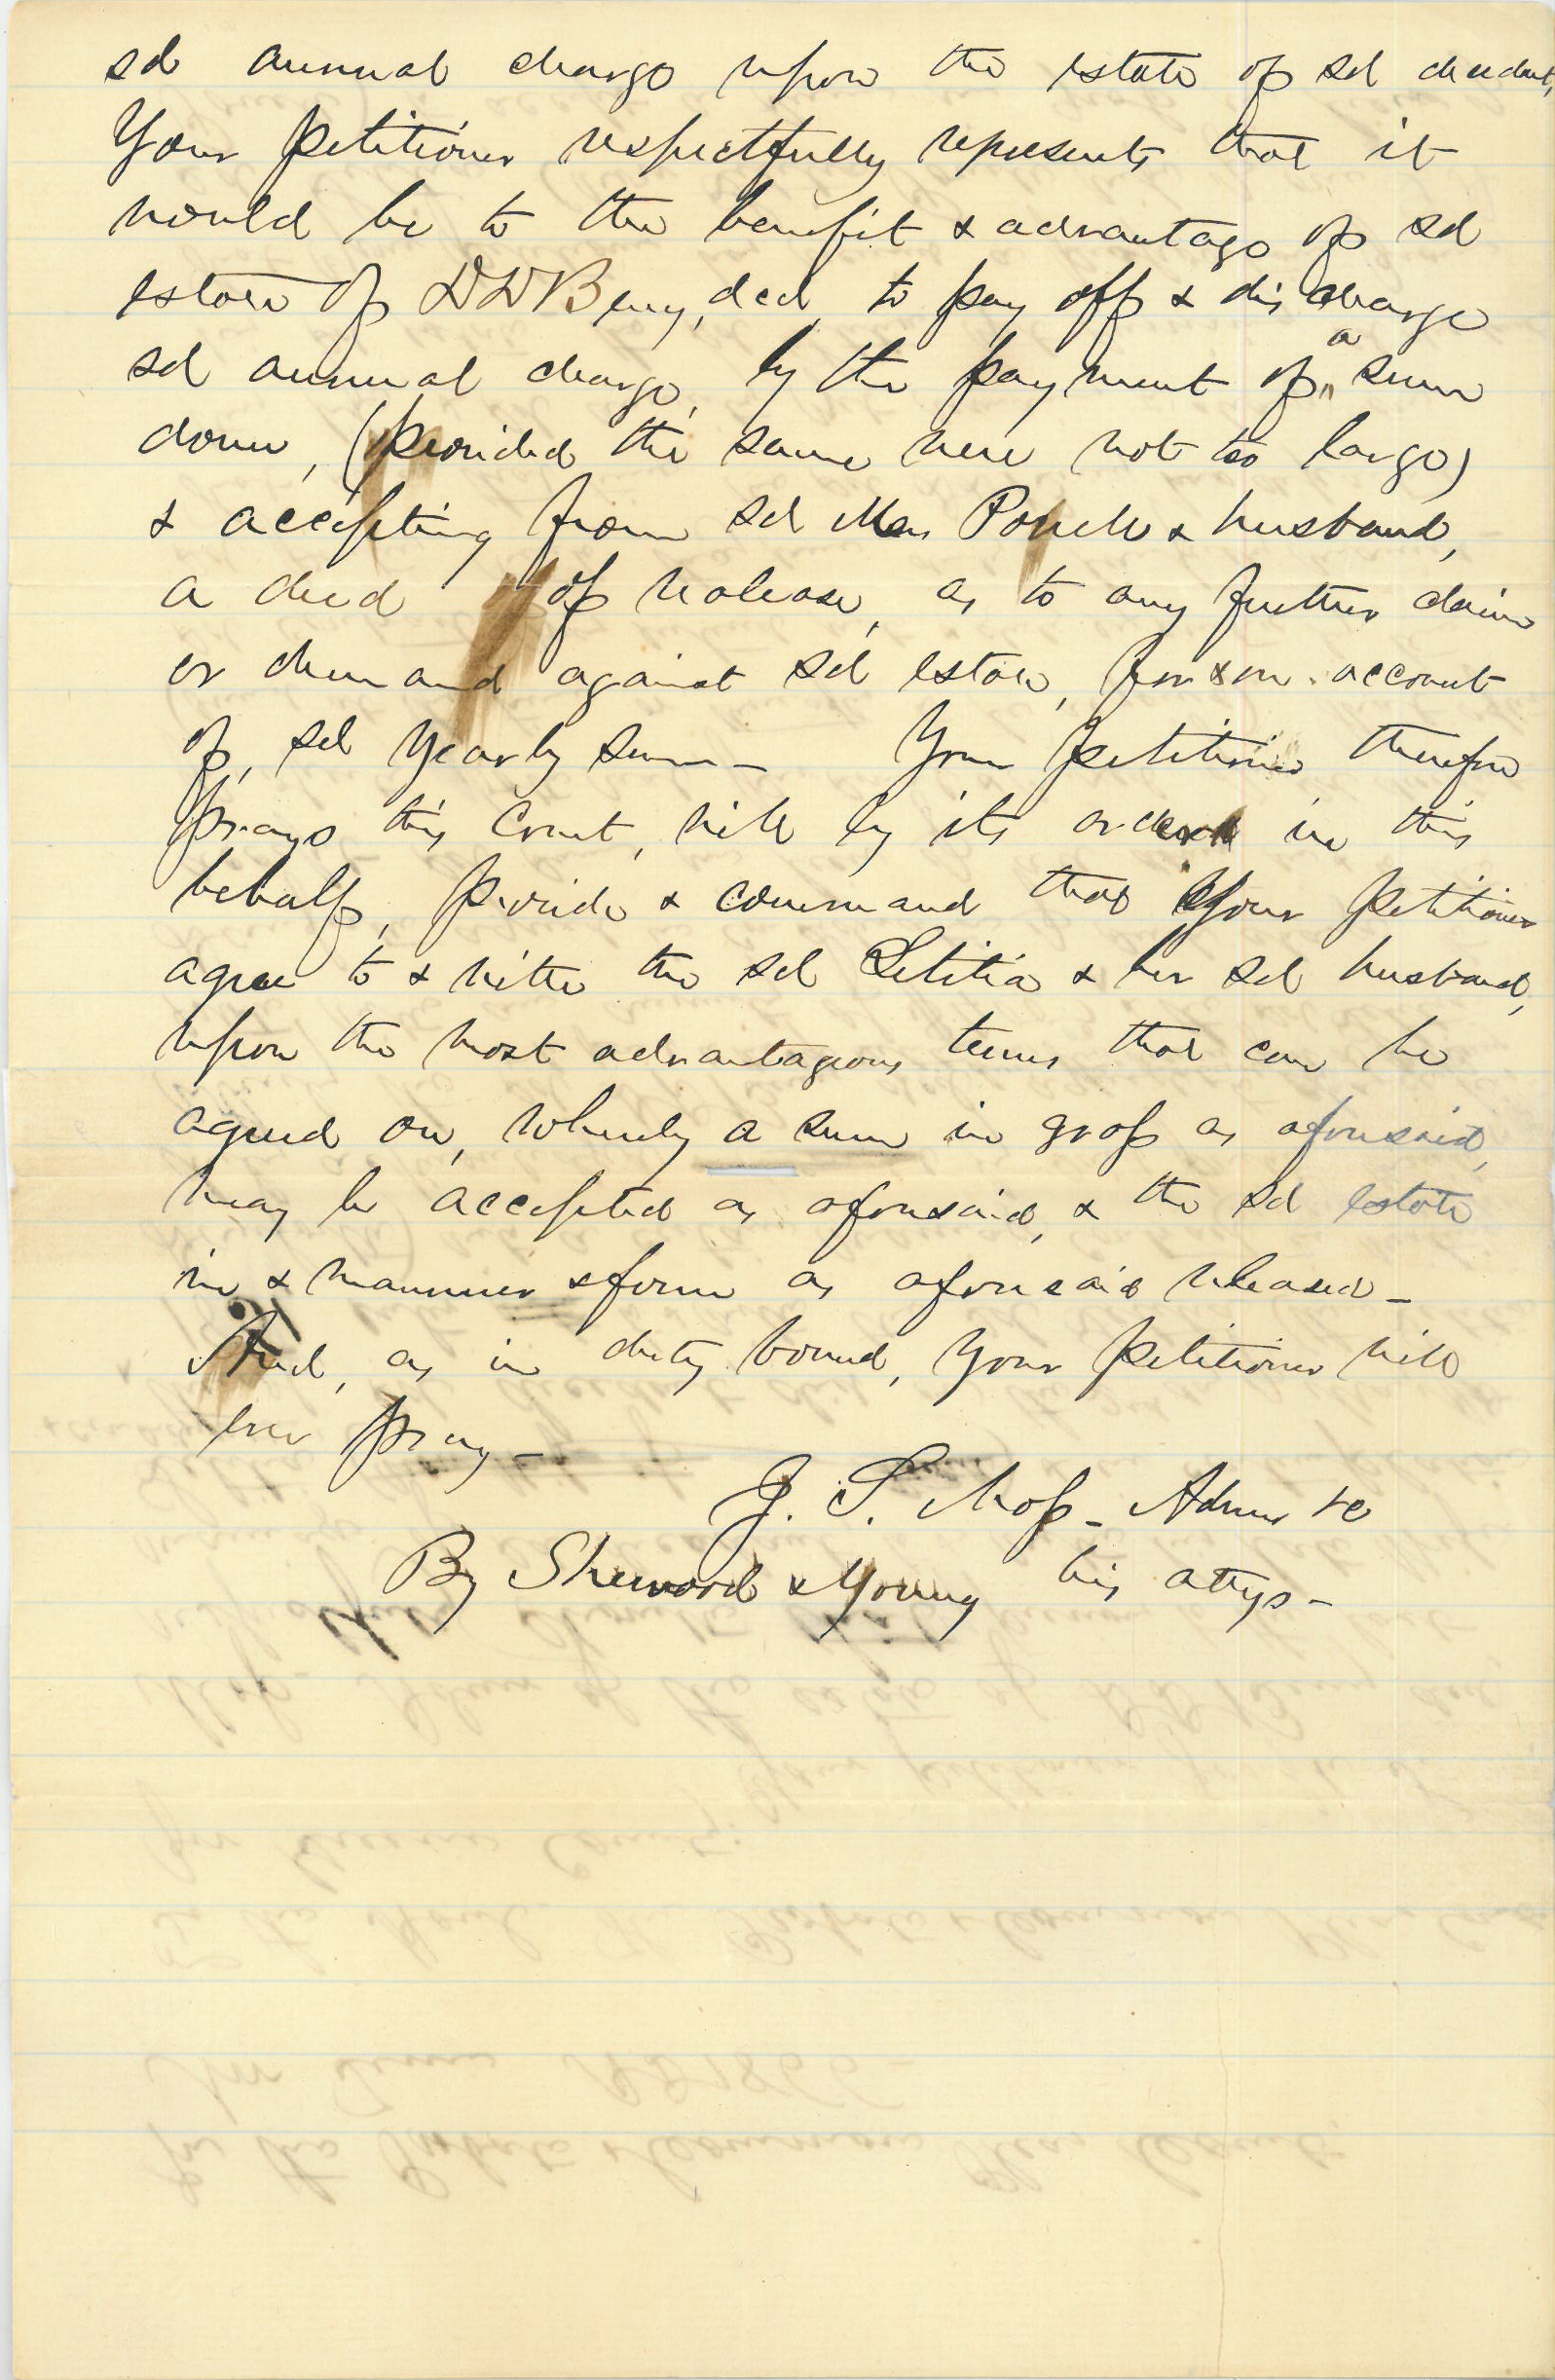 sd annual charge upon the estate of sd decedent,
Your petitioner respectfully represents that it
would be to the benefit & advantage of sd
estate of D D Berry, decd, to pay off & discharge
sd annual charge, by the payment of a sum
down, (provided the same were not too large)
& accepting from sd Mrs & husband,
a deed of release, as to any further claim
or demand against sd estate, for & on account
of, sd yearly sum – Your petitioner therefore
prays this Court, will by its order in this
behalf, provide & command that Your petitioner
agree to & with the sd Letitia & her sd husband,
upon the most advantageous terms that can be
agreed on, whereby a sum in gross as aforesaid,
may be accepted as aforesaid, & the sd estate
in & manner & form as aforesaid released –
And, as in duty bound, your petitioner will
ever pray –
J. T. Moss – Admr &c
By Sherwood & Young his attys –